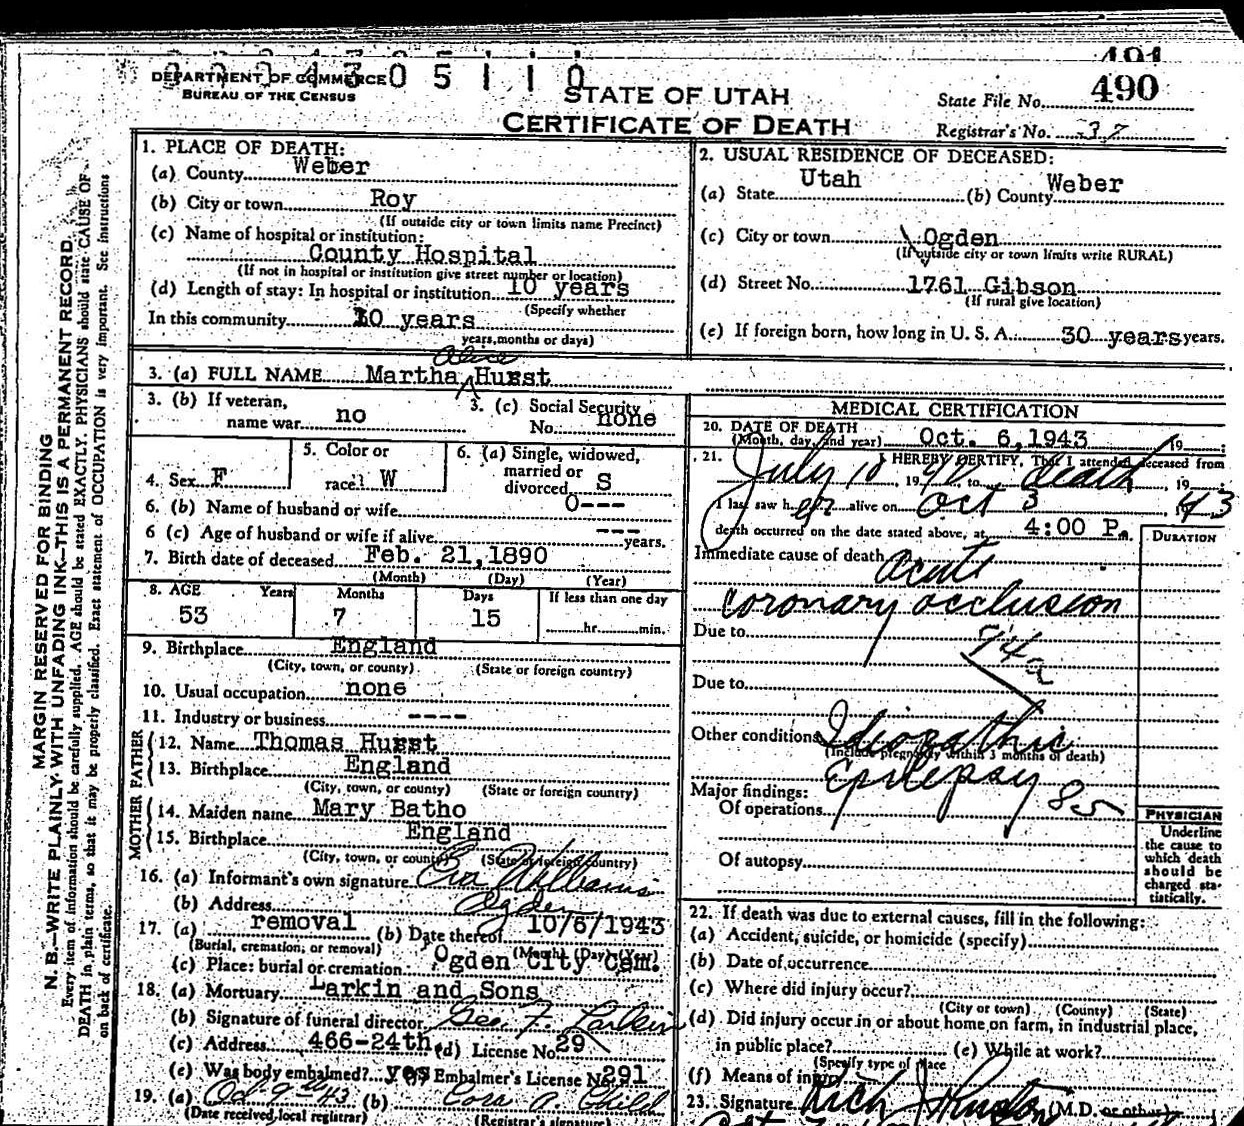 491
DEPARTMENT OF COMMERCE
BUREAU OF THE CENSUS
0 5 1 1 0
STATE OF UTAH
CERTIFICATE OF DEATH
State File No. 490
Registrar's No. 37
MARGIN RESERVED FOR BINDING
N. B.—WRITE PLAINLY WITH UNFADING INK—THIS IS A PERMANENT RECORD.
Every item of information should be carefully supplied. AGE should be stated EXACTLY. PHYSICIANS should state CAUSE OF
DEATH in plain terms, so that it may be properly classified. Exact statement of OCCUPATION is very important. See instructions
on back of certificate.
1. PLACE OF DEATH:
(a) County Weber
(b) City or town Roy
(If outside city or town limits name Precinct)
(c) Name of hospital or institution:
County Hospital
(If not in hospital or institution give street number or location)
(d) Length of stay: In hospital or institution 10 years
(Specify whether
In this community 10 years
years, months or days)
2. USUAL RESIDENCE OF DECEASED:
(a) State Utah (b) County Weber
(c) City or town Ogden
(If outside city or town limits write RURAL)
(d) Street No. 1761 Gibson
(If rural give location)
(e) If foreign born, how long in U. S. A. 30 years years.
Alice
3. (a) FULL NAME Martha Hurst
3. (b) If veteran, name war no
3. (c) Social Security No. none
4. Sex F
5. Color or race W
6. (a) Single, widowed, married or divorced S
6. (b) Name of husband or wife 0---
6 (c) Age of husband or wife if alive --- years.
7. Birth date of deceased Feb. 21, 1890
(Month) (Day) (Year)
8. AGE Years Months Days If less than one day
53 7 15 hr. min.
9. Birthplace England
(City, town, or county) (State or foreign country)
10. Usual occupation none
11. Industry or business ----
FATHER
12. Name Thomas Hurst
13. Birthplace England
(City, town, or county) (State or foreign country)
MOTHER
14. Maiden name Mary Batho
15. Birthplace England
(City, town, or county) (State or foreign country)
16. (a) Informant's own signature Eva Williams
(b) Address Ogden
17. (a) removal (b) Date thereof 10/6/1943
(Burial, cremation, or removal) (Month) (Day) (Year)
(c) Place: burial or cremation Ogden City Cem.
18. (a) Mortuary Larkin and Sons
(b) Signature of funeral director Geo. F. Larkin
(c) Address 466-24th (d) License No. 29
(e) Was body embalmed? yes (f) Embalmer's License No. 291
19. (a) Oct 9th 43 (b) Cora A. Child
(Date received local registrar) (Registrar's signature)
MEDICAL CERTIFICATION
20. DATE OF DEATH
(Month, day, and year) Oct. 6, 1943 19
21. I HEREBY CERTIFY, That I attended deceased from
July 10, 1940 to death, 19
I last saw her alive on Oct 3 1943
death occurred on the date stated above, at 4:00 P.m.
DURATION
Immediate cause of death Acute
coronary occlusion
Due to 94a
Due to
Other conditions Idiopathic
(Include pregnancy within 3 months of death)
Epilepsy 85
Major findings:
Of operations
Of autopsy
PHYSICIAN
Underline
the cause to
which death
should be
charged sta-
tistically.
22. If death was due to external causes, fill in the following:
(a) Accident, suicide, or homicide (specify)
(b) Date of occurrence
(c) Where did injury occur?
(City or town) (County) (State)
(d) Did injury occur in or about home on farm, in industrial place,
in public place? (e) While at work?
(Specify type of place
(f) Means of injury
23. Signature Rich J (M.D. or other)